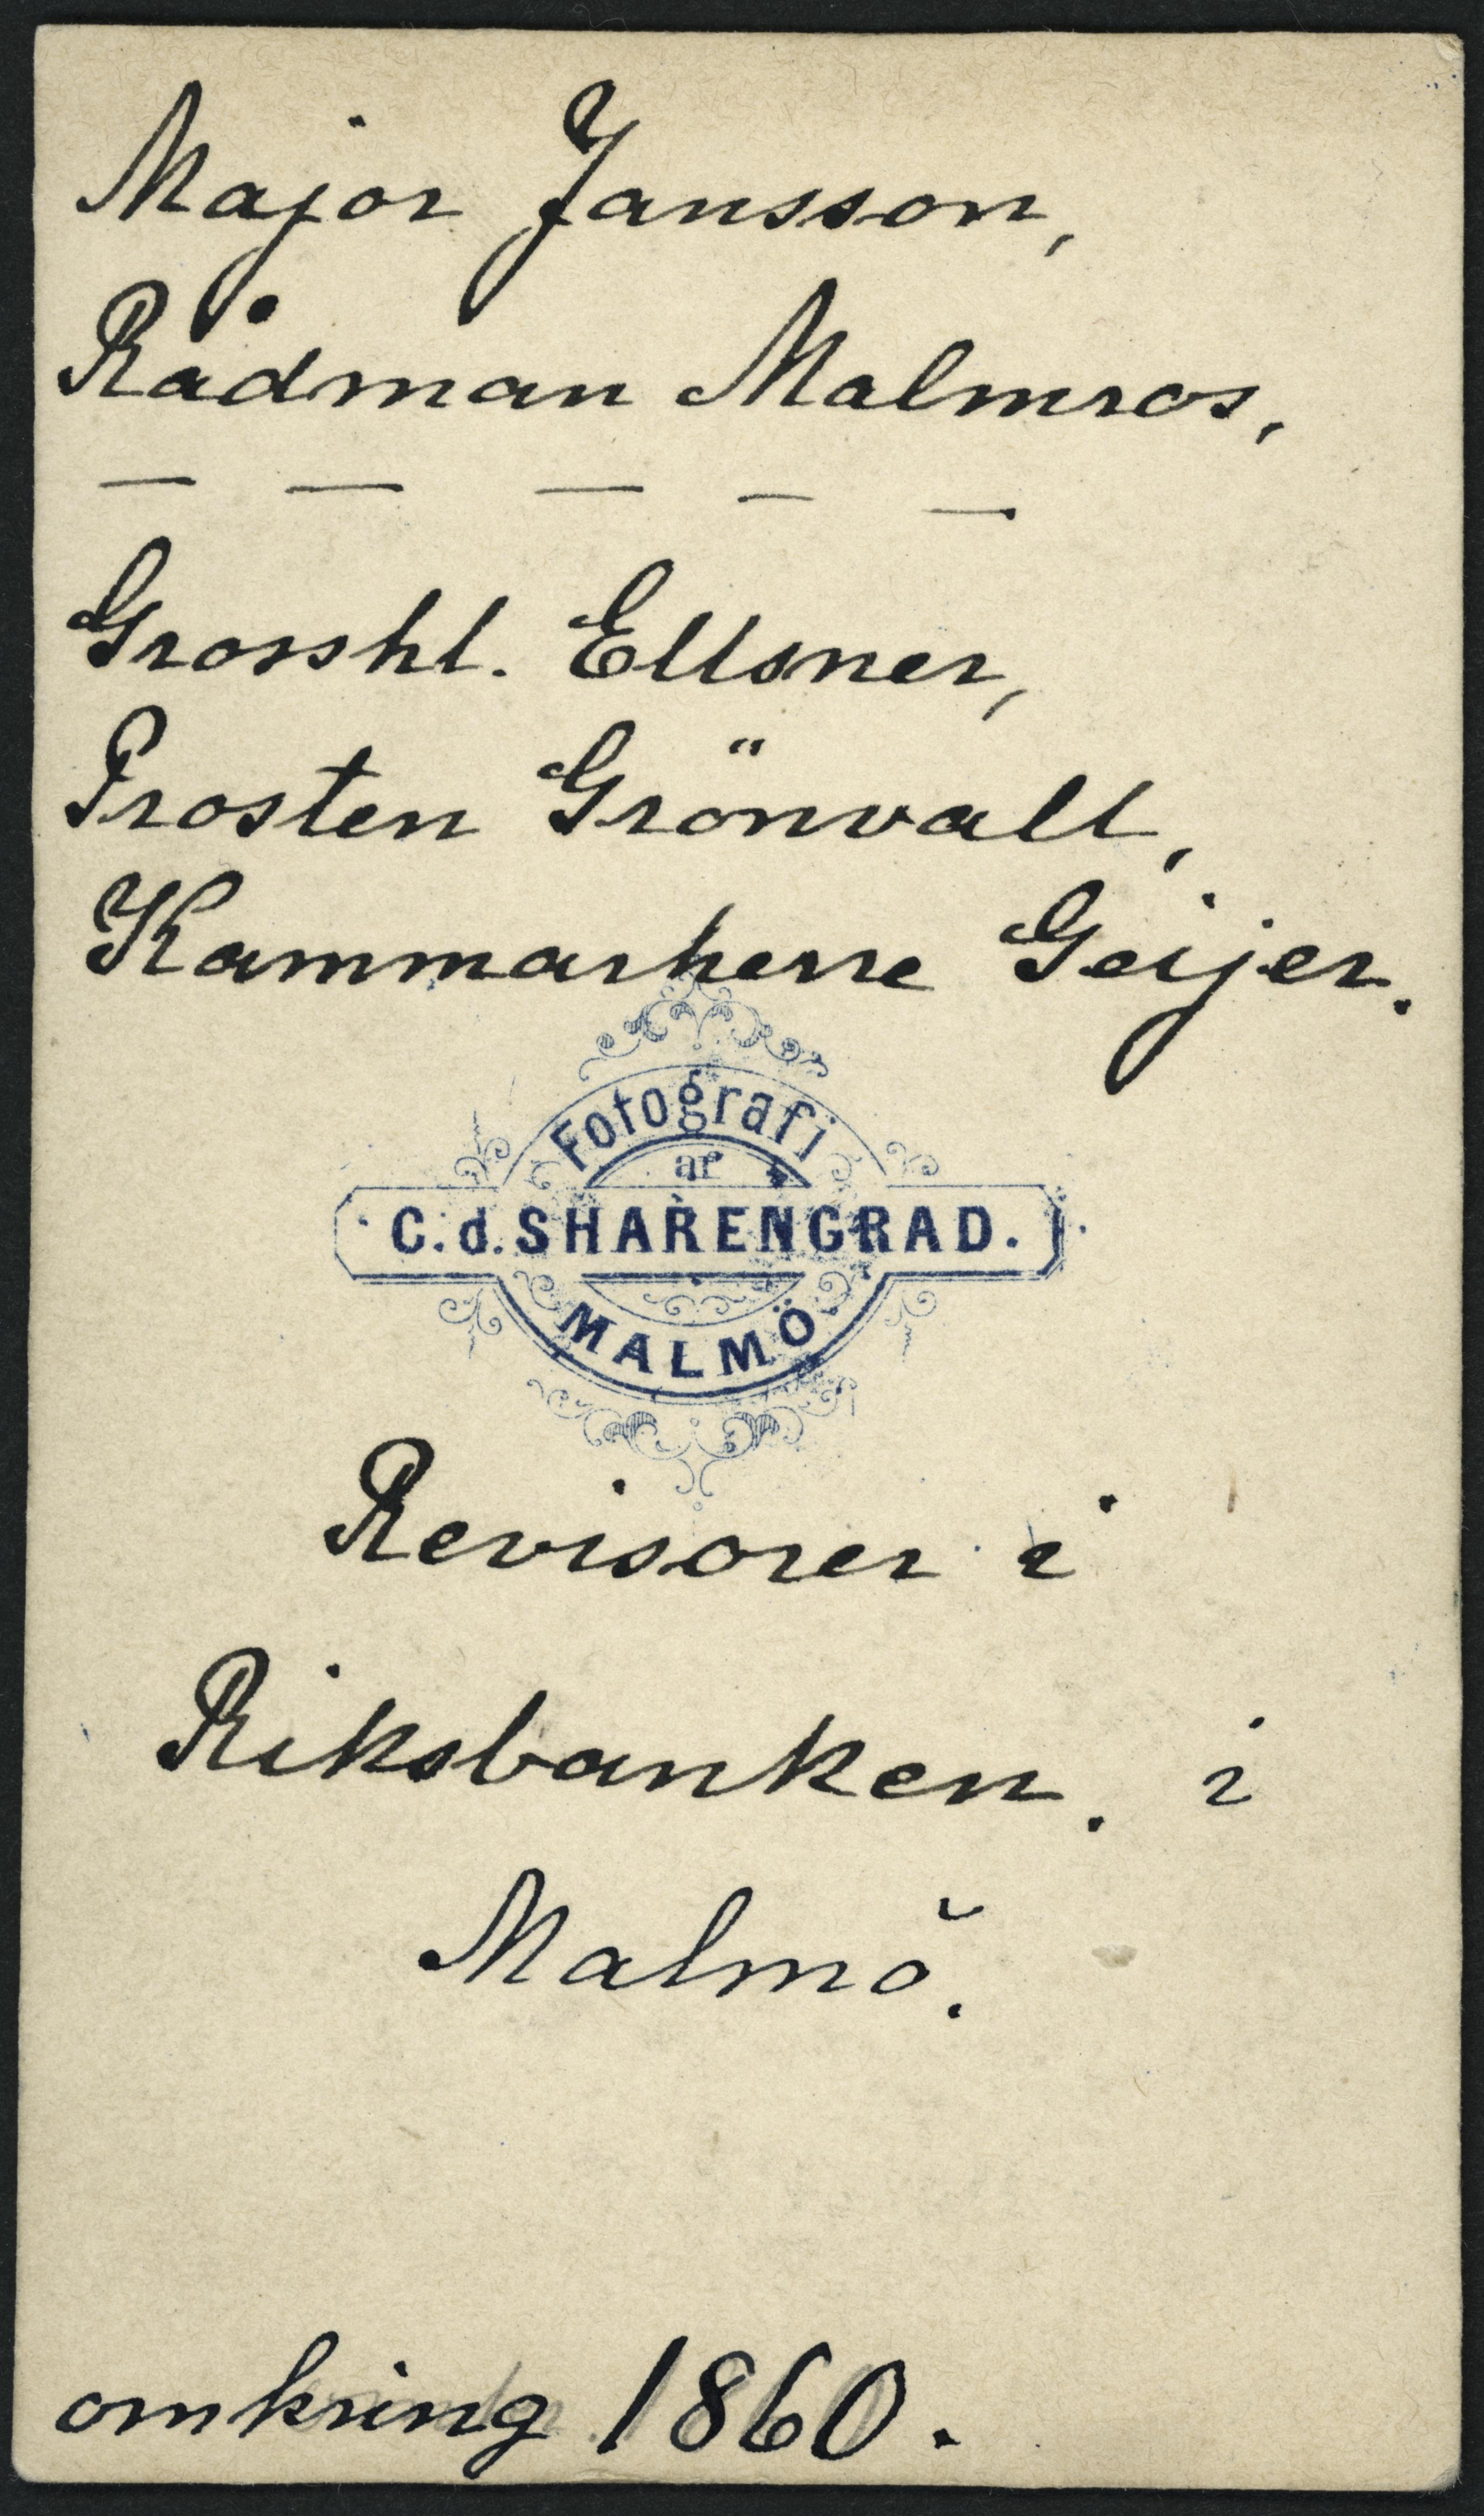 Major Jansson,
Rådman Malmros,
— — — — —
Grosshl. Ellsner,
Prosten Grönvall,
Kammarherre Geijer.
Fotografi
af
C. d. SHARENGRAD.
MALMÖ.
Revisorer i
Riksbanken. i
Malmö.
omkring 1860.